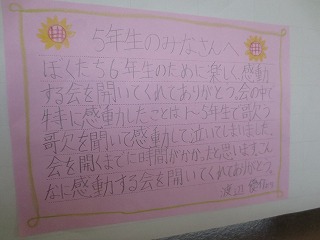 5年生のみなさんへ
ぼくたち6年生のために楽しく感動
する会を開いてくれてありがとう。会の中で
特に感動したことは1〜5年生で歌う
歌を聞いて感動して泣いてしまいました。
会を開くまでに時間がかかったと思います。こん
なに感動する会を開いてくれてありがとう。